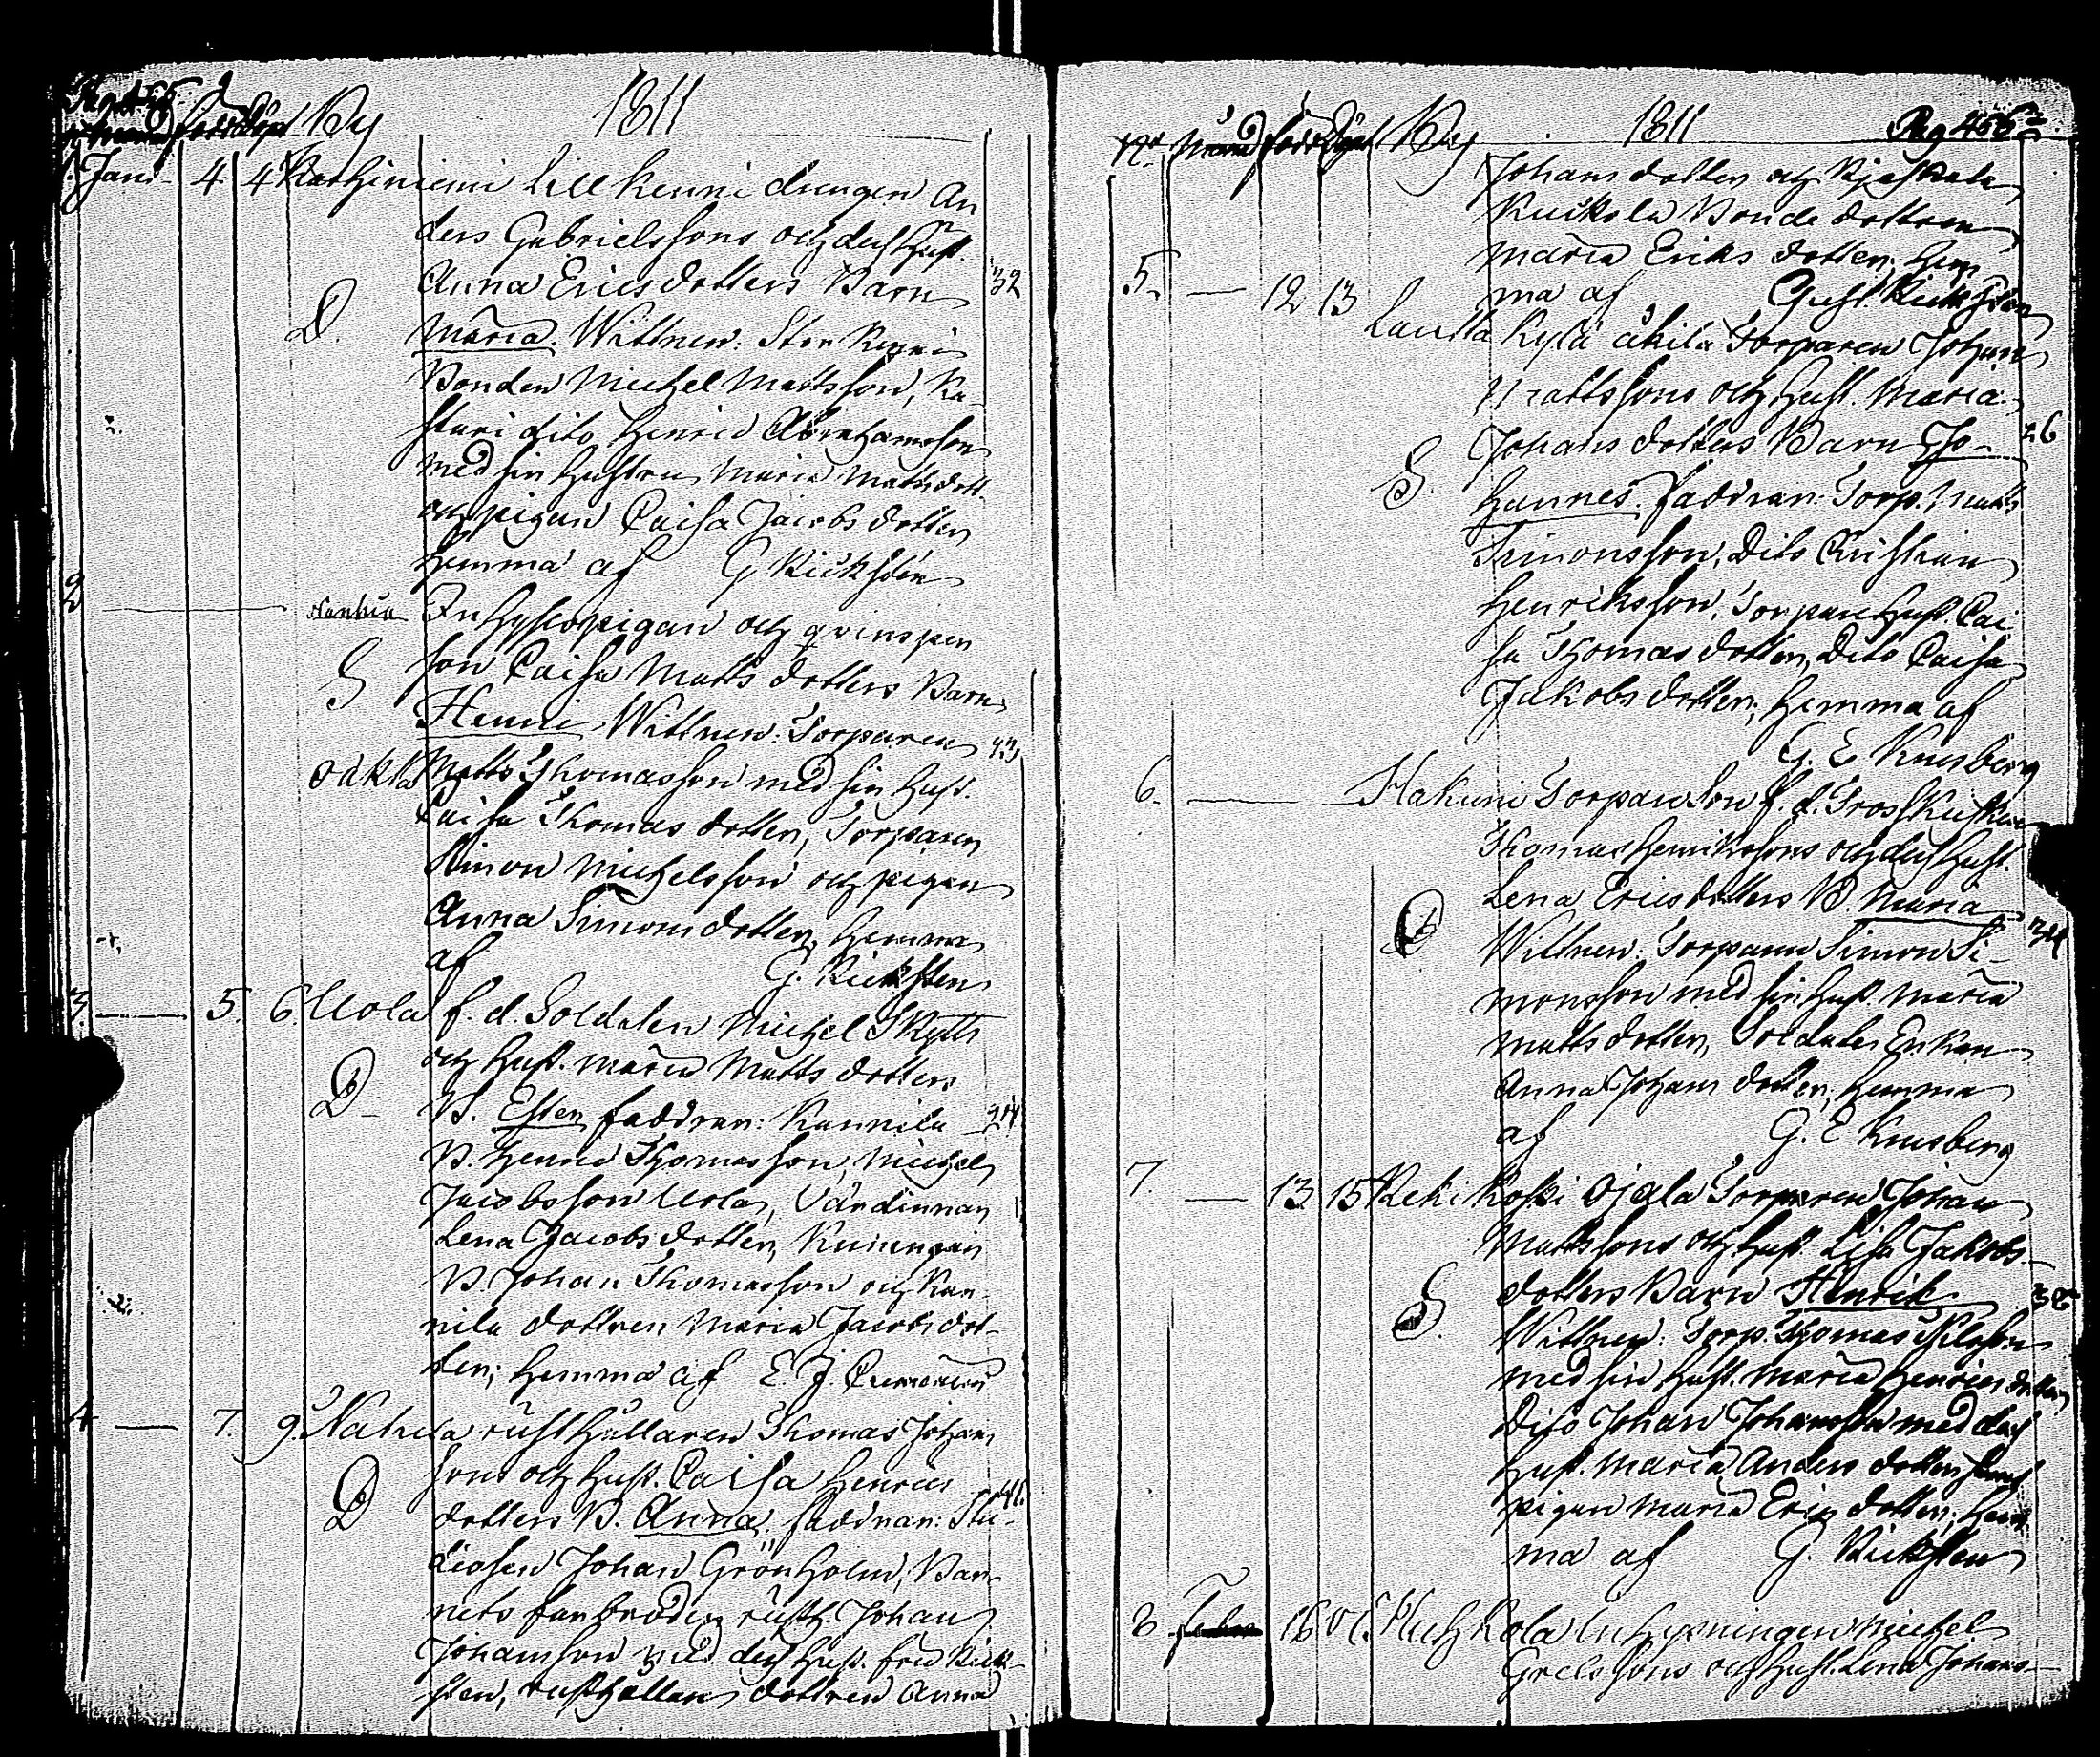 Pag 455.
Månad född Döpt By 1811
1. Janu- 4 4 Karhiniemi Lill Kenni drengen An
ders Gabrielssons och dess Hust.
Anna Erics dotters Barn 32
D. Maria. Wittnen: Stor Kenni
Bonden Michel Mattsson, Ka-
stari dito Henric Abrahamsson
med sin hustru Maria Matts dott.
och pigan Caisa Jacobs dotter
hemma af G Rickstén
2 Inhyses pigan och qvinsper
S son Caisa Matts dotters Barn
Henric Wittnen: Torparen 43
oäkta Matts Thomasson med sin Hust.
Caisa Thomas dotter, Torparen
Simon Michelsson och pigan
Anna Simons dotter, hemma
af G. Ricksten
3. 5. 6. Uola f. d. Soldaten Michel Skytts
och Hust. Maria Matts dotters
D B. Ester faddrar: Kannila 24
B. Henric Thomasson, Michel
Jacobsson Uola, Värdinnan
Lena Jacobs dotter, Kuningain
B. Johan Thomasson och Kan-
nila dottren Maria Jacobs dot-
ter; hemma af E. J.
4 7. 9. rusthållaren Thomas Johans
sons och Hust. Caisa Henrics 41.
D dotters B. Anna. faddrar: Stu-
diosen Johan Grönholm, Bar-
nets farbroder rusth. Johan
Johansson med dess Hust. fru Rick-
sten, rusthållare dottren Anna
No Månad född Döpt By 1811 Pag 456
Johans dotter och
Kuikola Bonde dottren
Maria Eriks dotter; hem
ma af Gust. Ricksten
5. 12 13 Lautta Kylä äkilä Torparen Johan
Mattssons och Hust. Maria
Johans dotters Barn Jo- 26
S. hannes. faddrar: Torp. Matts
Simonsson, Dito Christian
Henriksson, Torpare Hust. Cai
sa Thomas dotter, Dito Caisa
Jakobs dotter; hemma af
G. E Knusberg
6. Hakuni Torpare Son f. d.
Thomas Henrikssons och dess Hust.
Lena Erics dotters B. Maria
D Wittnen: Torparen Simon Si- 34
monsson med sin Hust. Maria
Matts dotter, Soldats Enkan
Anna Johans dotter; hemma
af G. E Knusberg
7. 13 15 Keki Koski Ojala Torparen Johan
Mattssons och Hust Lisa Jakobs
dotters Barn Henrik
S. Wittnen: Torp. Thomas Nilsson
med sin Hust. Maria Henrics dotter
Dito Johan Johansson med dess
Hust. Maria Anders dotter samt
pigan Maria Erics dotter; hem
ma af G. Ricksten
8 Febru 16 Huhkola Inhysningen Michel
Grelssons och Hust. Lena Johans-